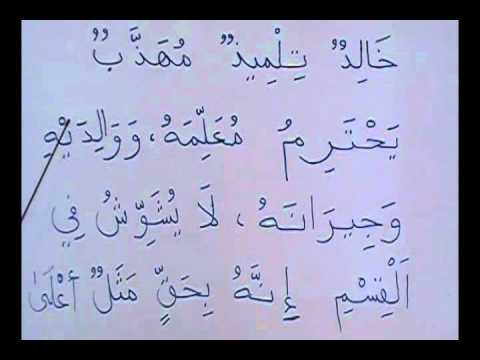 خَالِدٌ تِلْمِيذٌ مُهَذَّبٌ
يَحْتَرِمُ مُعَلِّمَهُ، وَوَالِدَيْهِ
وَجِيرَانَهُ، لَا يُشَوِّشُ فِي
اَلْقِسْمِ إِنَّهُ بِحَقٍّ مَثَلٌ أَعْلَى